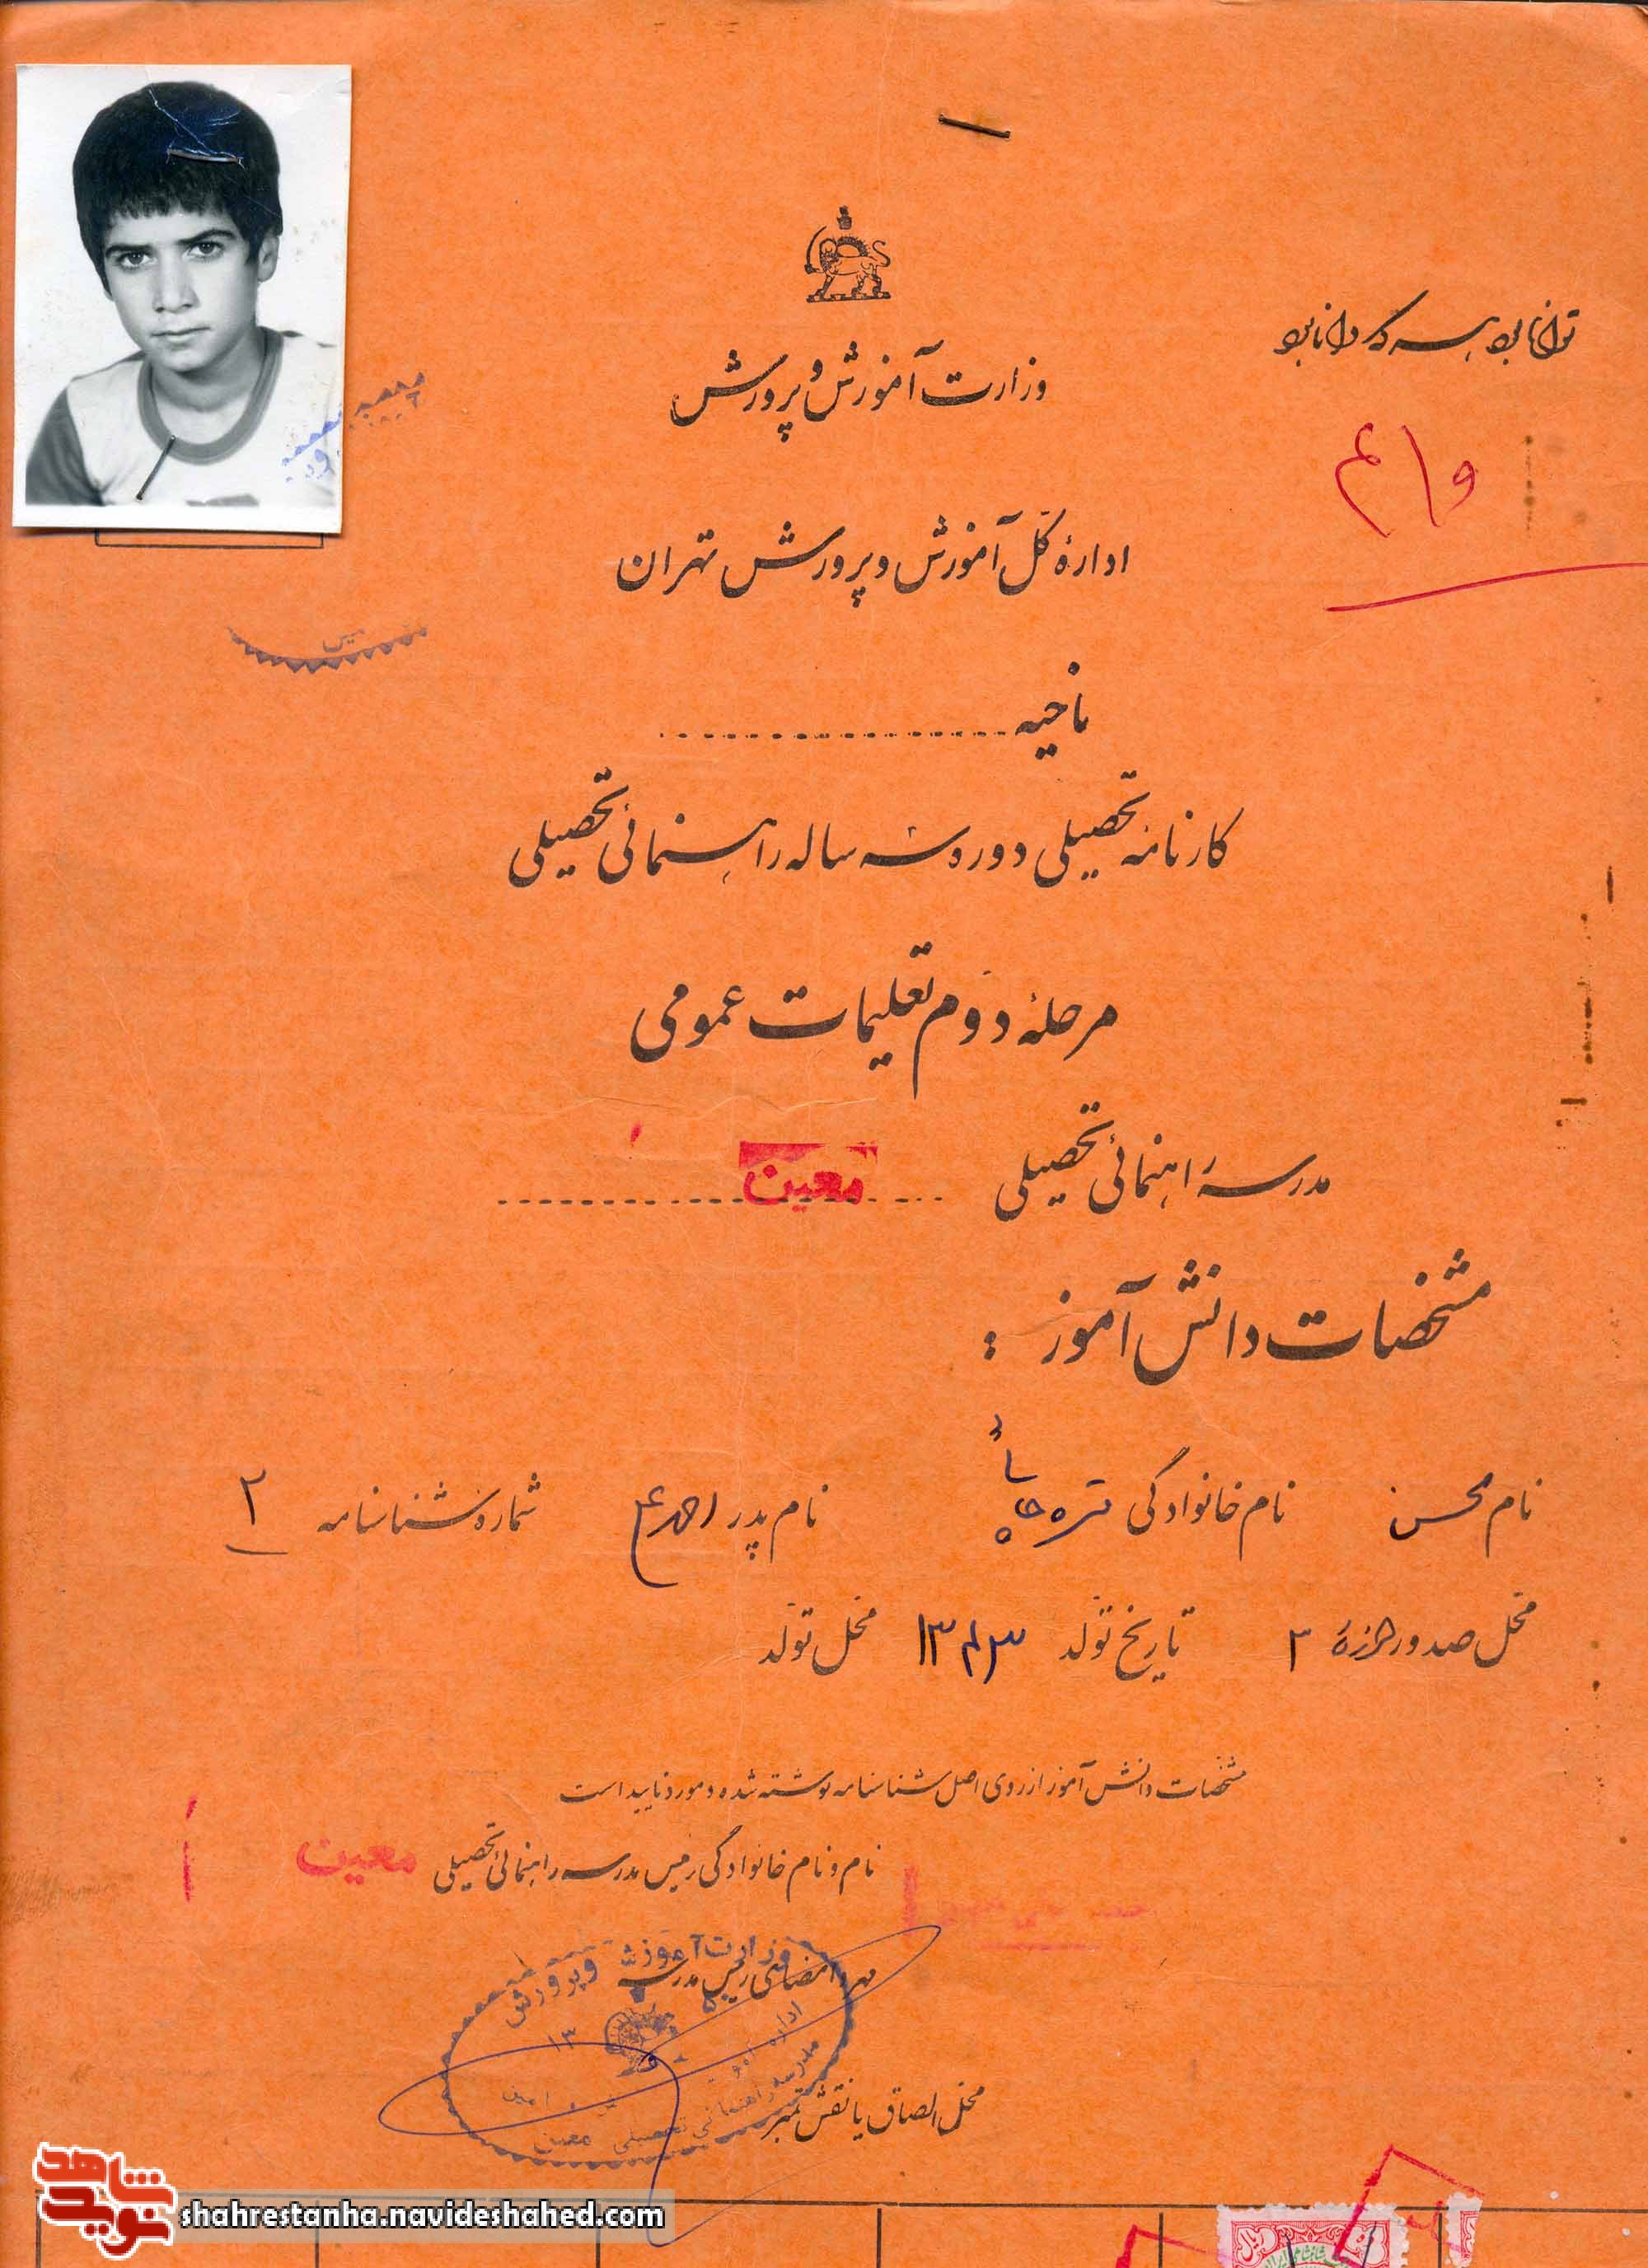 توانا بود هر که دانا بود
وزارت آموزش و پرورش
ادارهٔ کل آموزش و پرورش تهران
ناحیه
کارنامه تحصیلی دوره سه ساله راهنمائی تحصیلی
مرحله دوم تعلیمات عمومی
مدرسه راهنمائی تحصیلی معین
مشخصات دانش آموز :
نام محسن نام خانوادگی قره نام پدر احمد شماره شناسنامه ۲
محل صدور ۳ تاریخ تولد ۱۳۴۳ محل تولد
مشخصات دانش آموز از روی اصل شناسنامه نوشته شده و مورد تایید است
نام و نام خانوادگی رئیس مدرسه راهنمائی تحصیلی معین
مهر و امضای رئیس مدرسه
وزارت آموزش و پرورش
مدرسه راهنمائی تحصیلی معین
محل الصاق یا نقش تمبر
نوید شاهد
shahrestanha.navideshahed.com